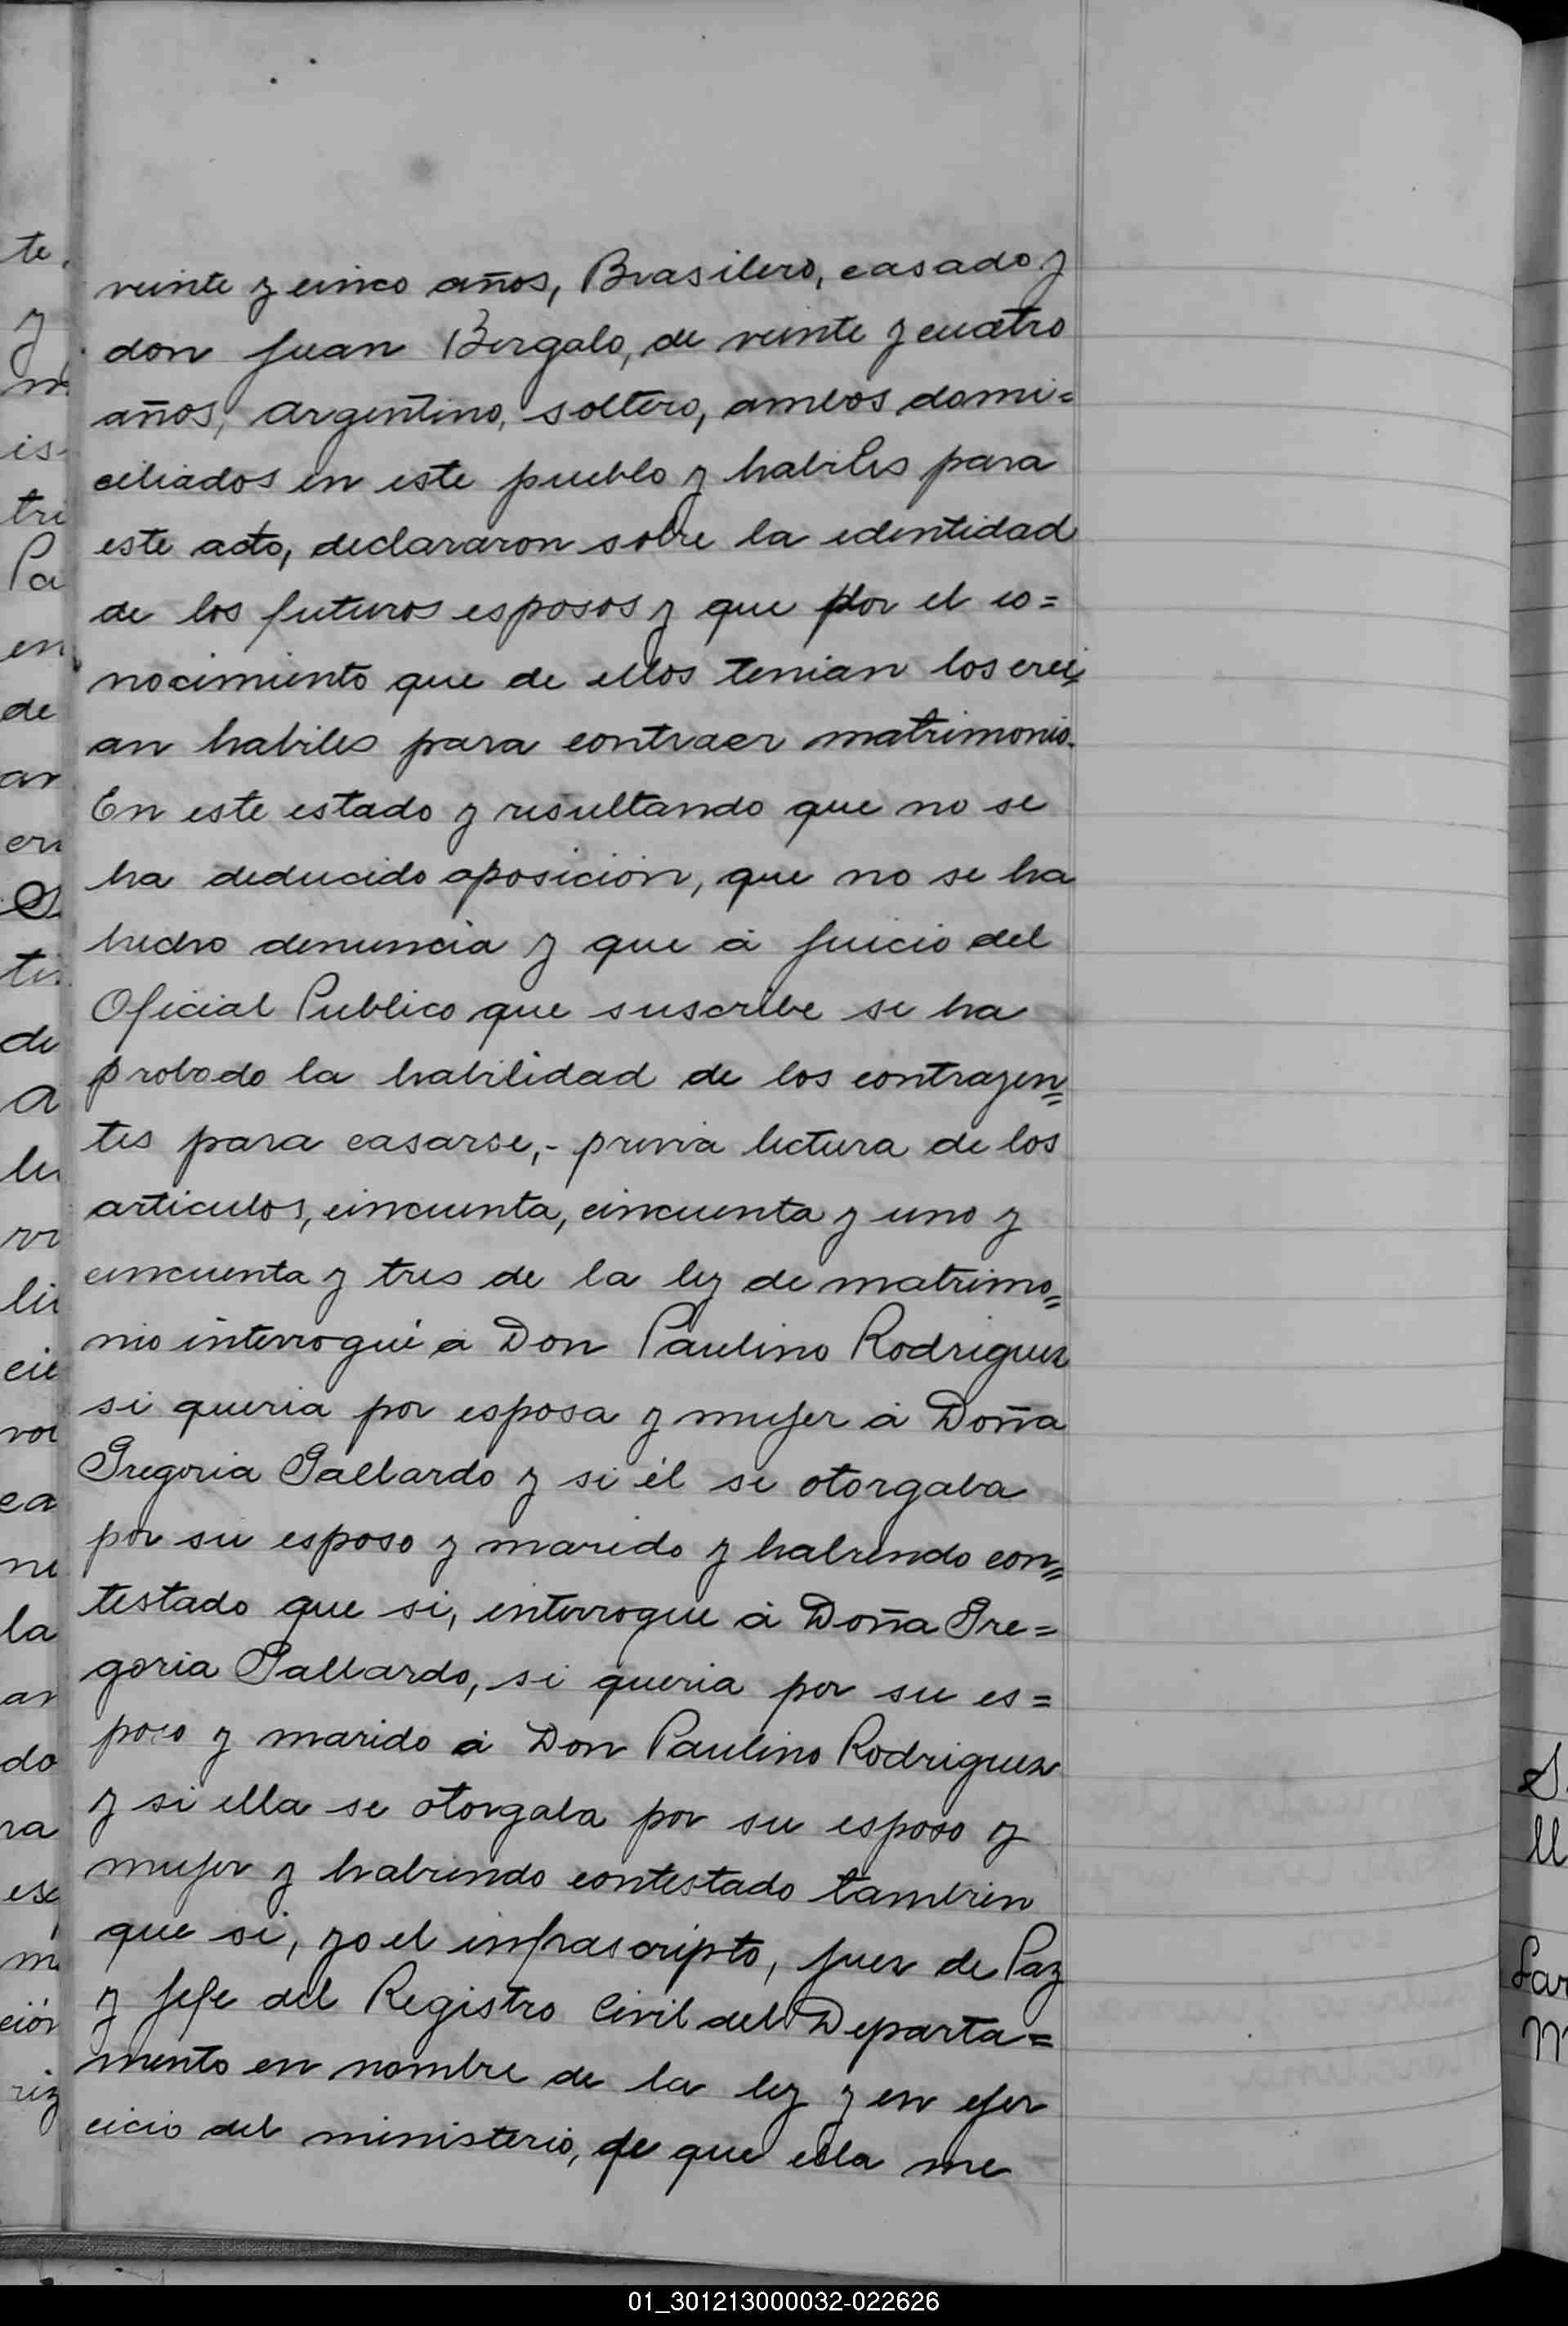 veinte y cinco años, Brasilero, casado y
don Juan Bergalo, de veinte y cuatro
años, argentino, soltero, ambos domi=
ciliados en este pueblo y habiles para
este acto, declararon sobre la edentidad
de los futuros esposos y que por el co=
nocimiento que de ellos tenian los crei=
an habiles para contraer matrimonio.
En este estado y resultando que no se
ha deducido oposición, que no se ha
hecho denuncia y que á juicio del
Oficial Publico que suscribe se ha
probado la habilidad de los contrayen=
tes para casarse,- previa lectura de los
articulos, cincuenta, cincuenta y uno y
cincuenta y tres de la ley de matrimo=
nio interrogué á Don Paulino Rodriguez
si queria por esposa y mujer á Doña
Gregoria Gallardo y si él se otorgaba
por su esposo y marido y habiendo con=
testado que si, interrogue á Doña Gre=
goria Gallardo, si queria por su es=
poso y marido á Don Paulino Rodriguez
y si ella se otorgaba por su esposo y
mujer y habiendo contestado tambien
que si, yo el infrascripto, Juez de Paz
y Jefe del Registro Civil del Departa=
mento en nombre de la ley y en ejer
cicio del ministerio, de que ella me
01_301213000032-022626